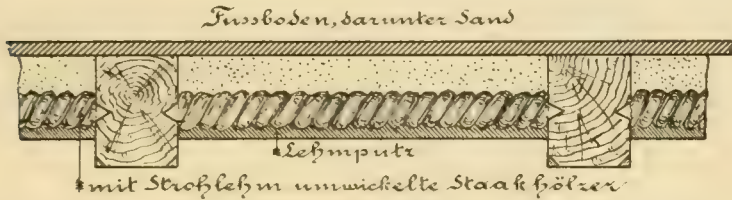 Fussboden, darunter Sand
Lehmputz
mit Strohlehm umwickelte Staakhölzer